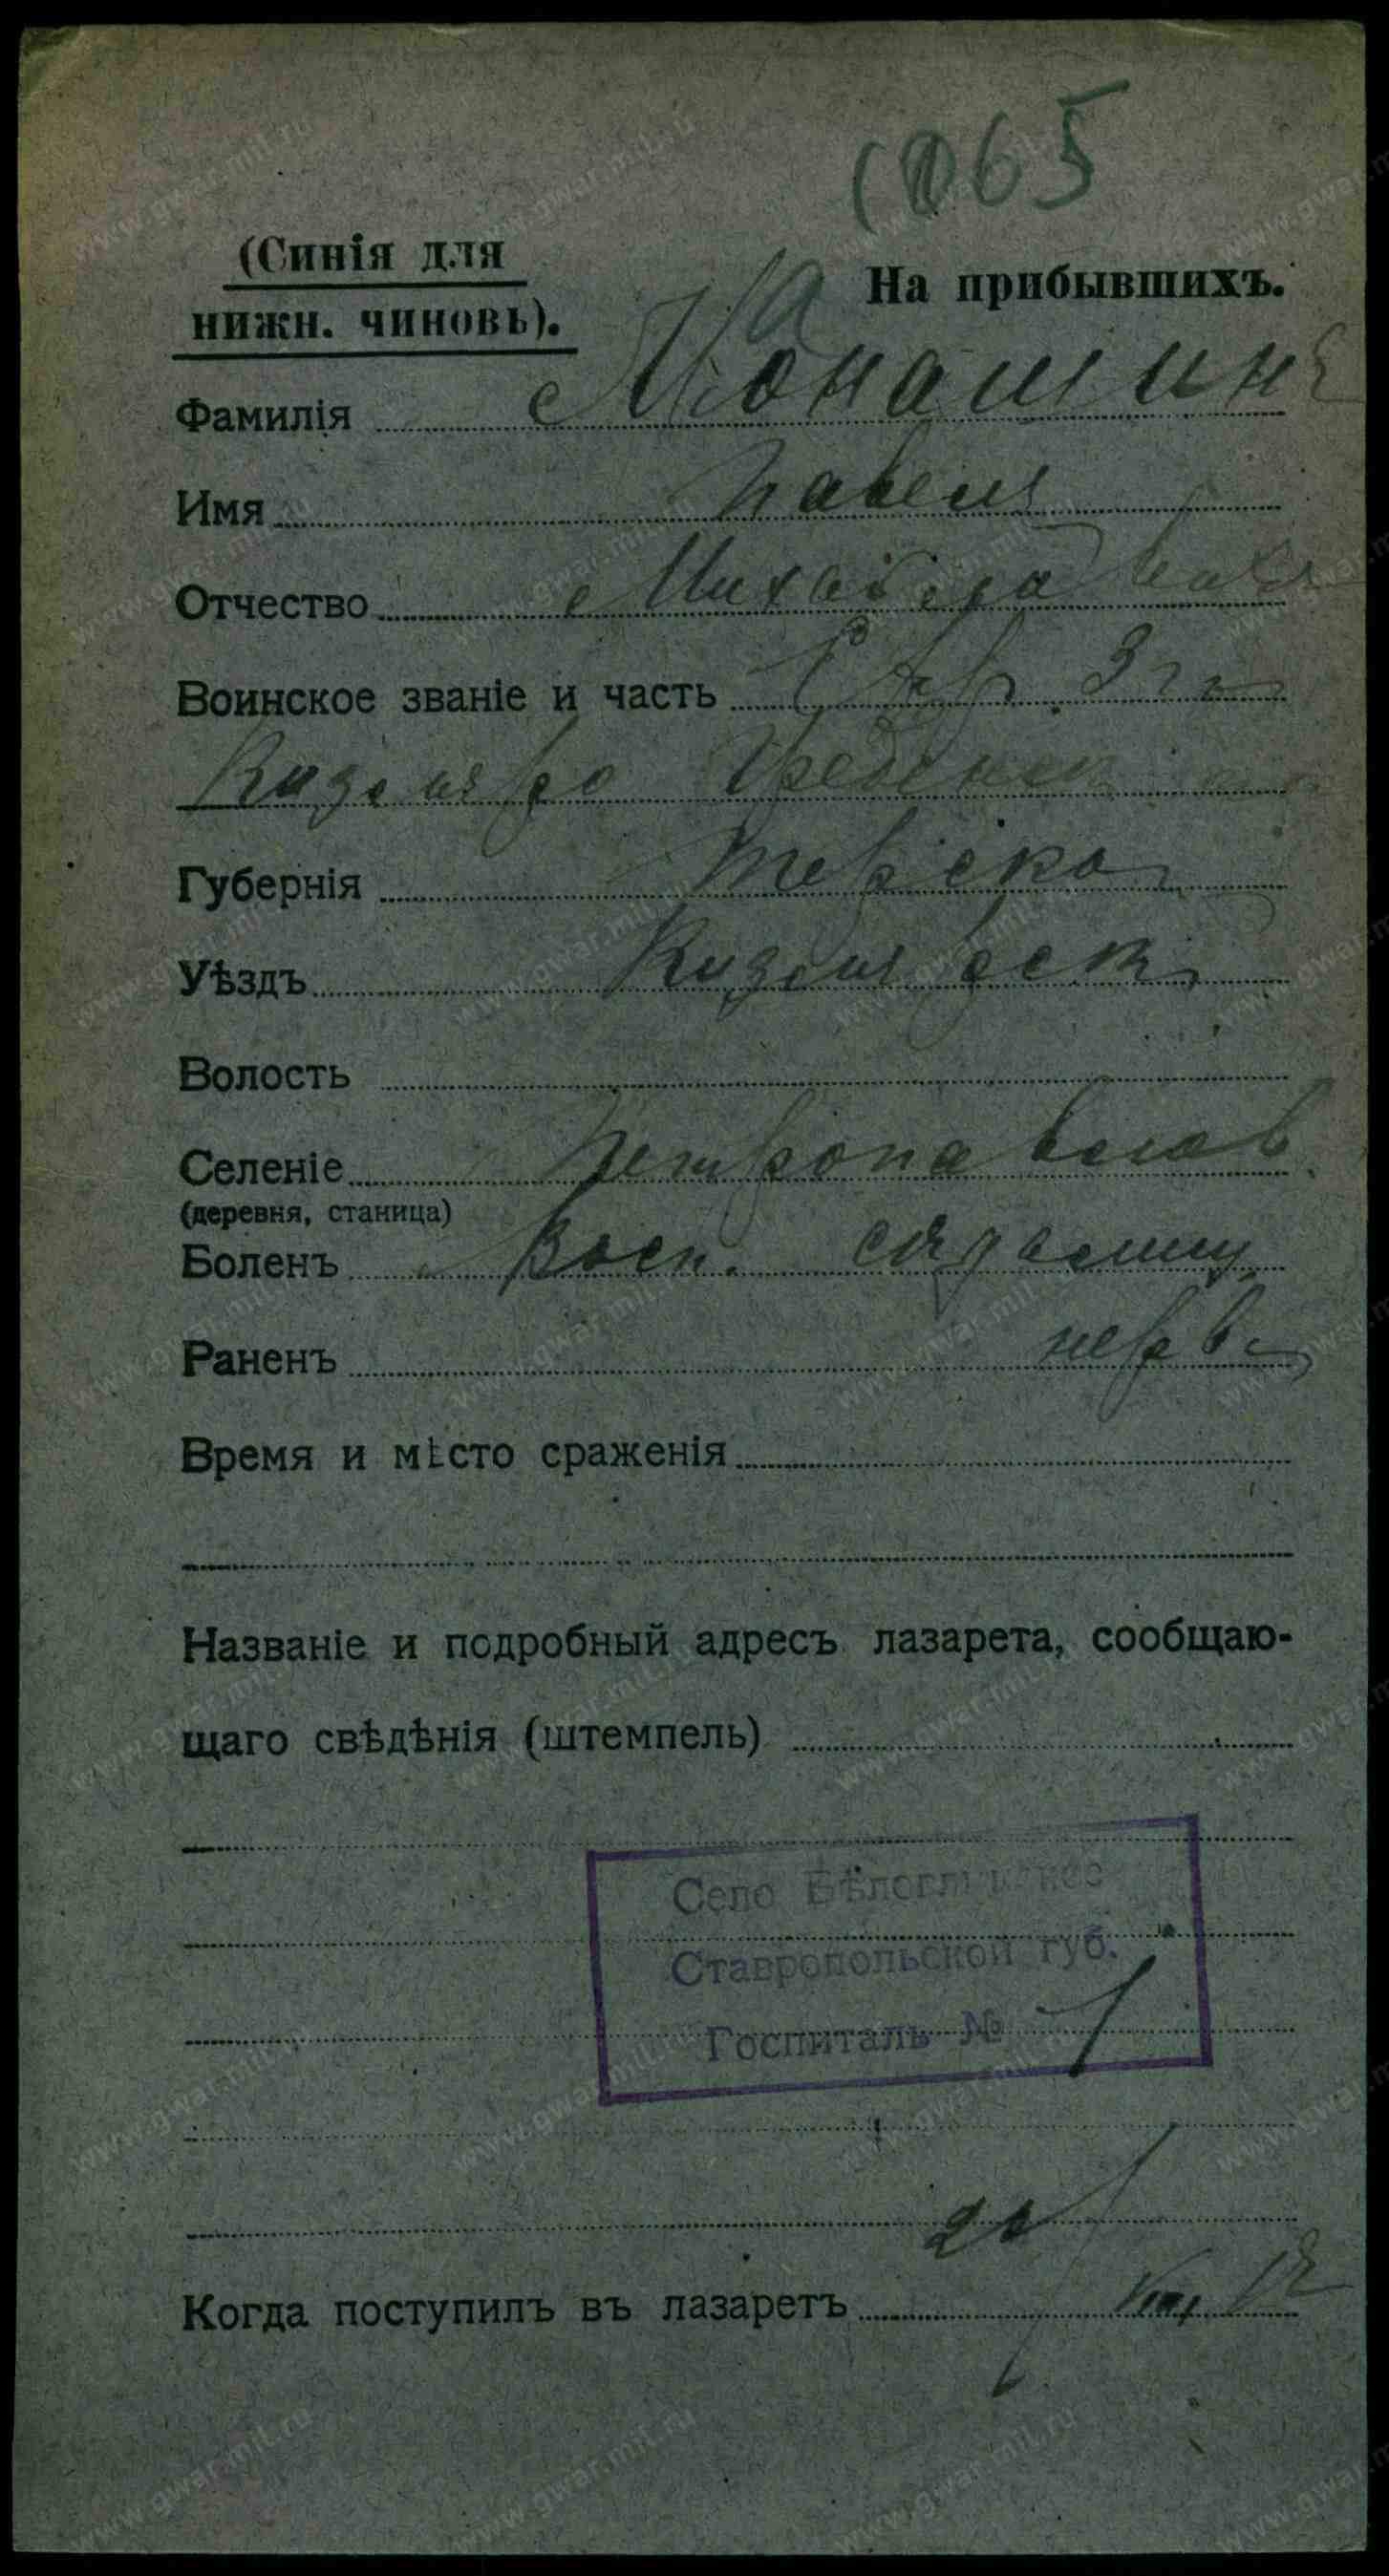 1065
(Синія для
нижн. чиновъ).
На прибывшихъ.
Фамилія Монашинъ
Имя Павелъ
Отчество Михайловичъ
Воинское званіе и часть 3го
Кизляро Гребенск
Губернія Терско
Уѣздъ Кизлярск
Волость
Селеніе Петропавлов
(деревня, станица)
Боленъ Восп. сѣдалищ
Раненъ нерва
Время и мѣсто сраженія
Названіе и подробный адресъ лазарета, сообщаю-
щаго свѣдѣнія (штемпель)
Село Бѣлоглинское
Ставропольской губ.
Госпиталь № 1
Когда поступилъ въ лазаретъ VIII